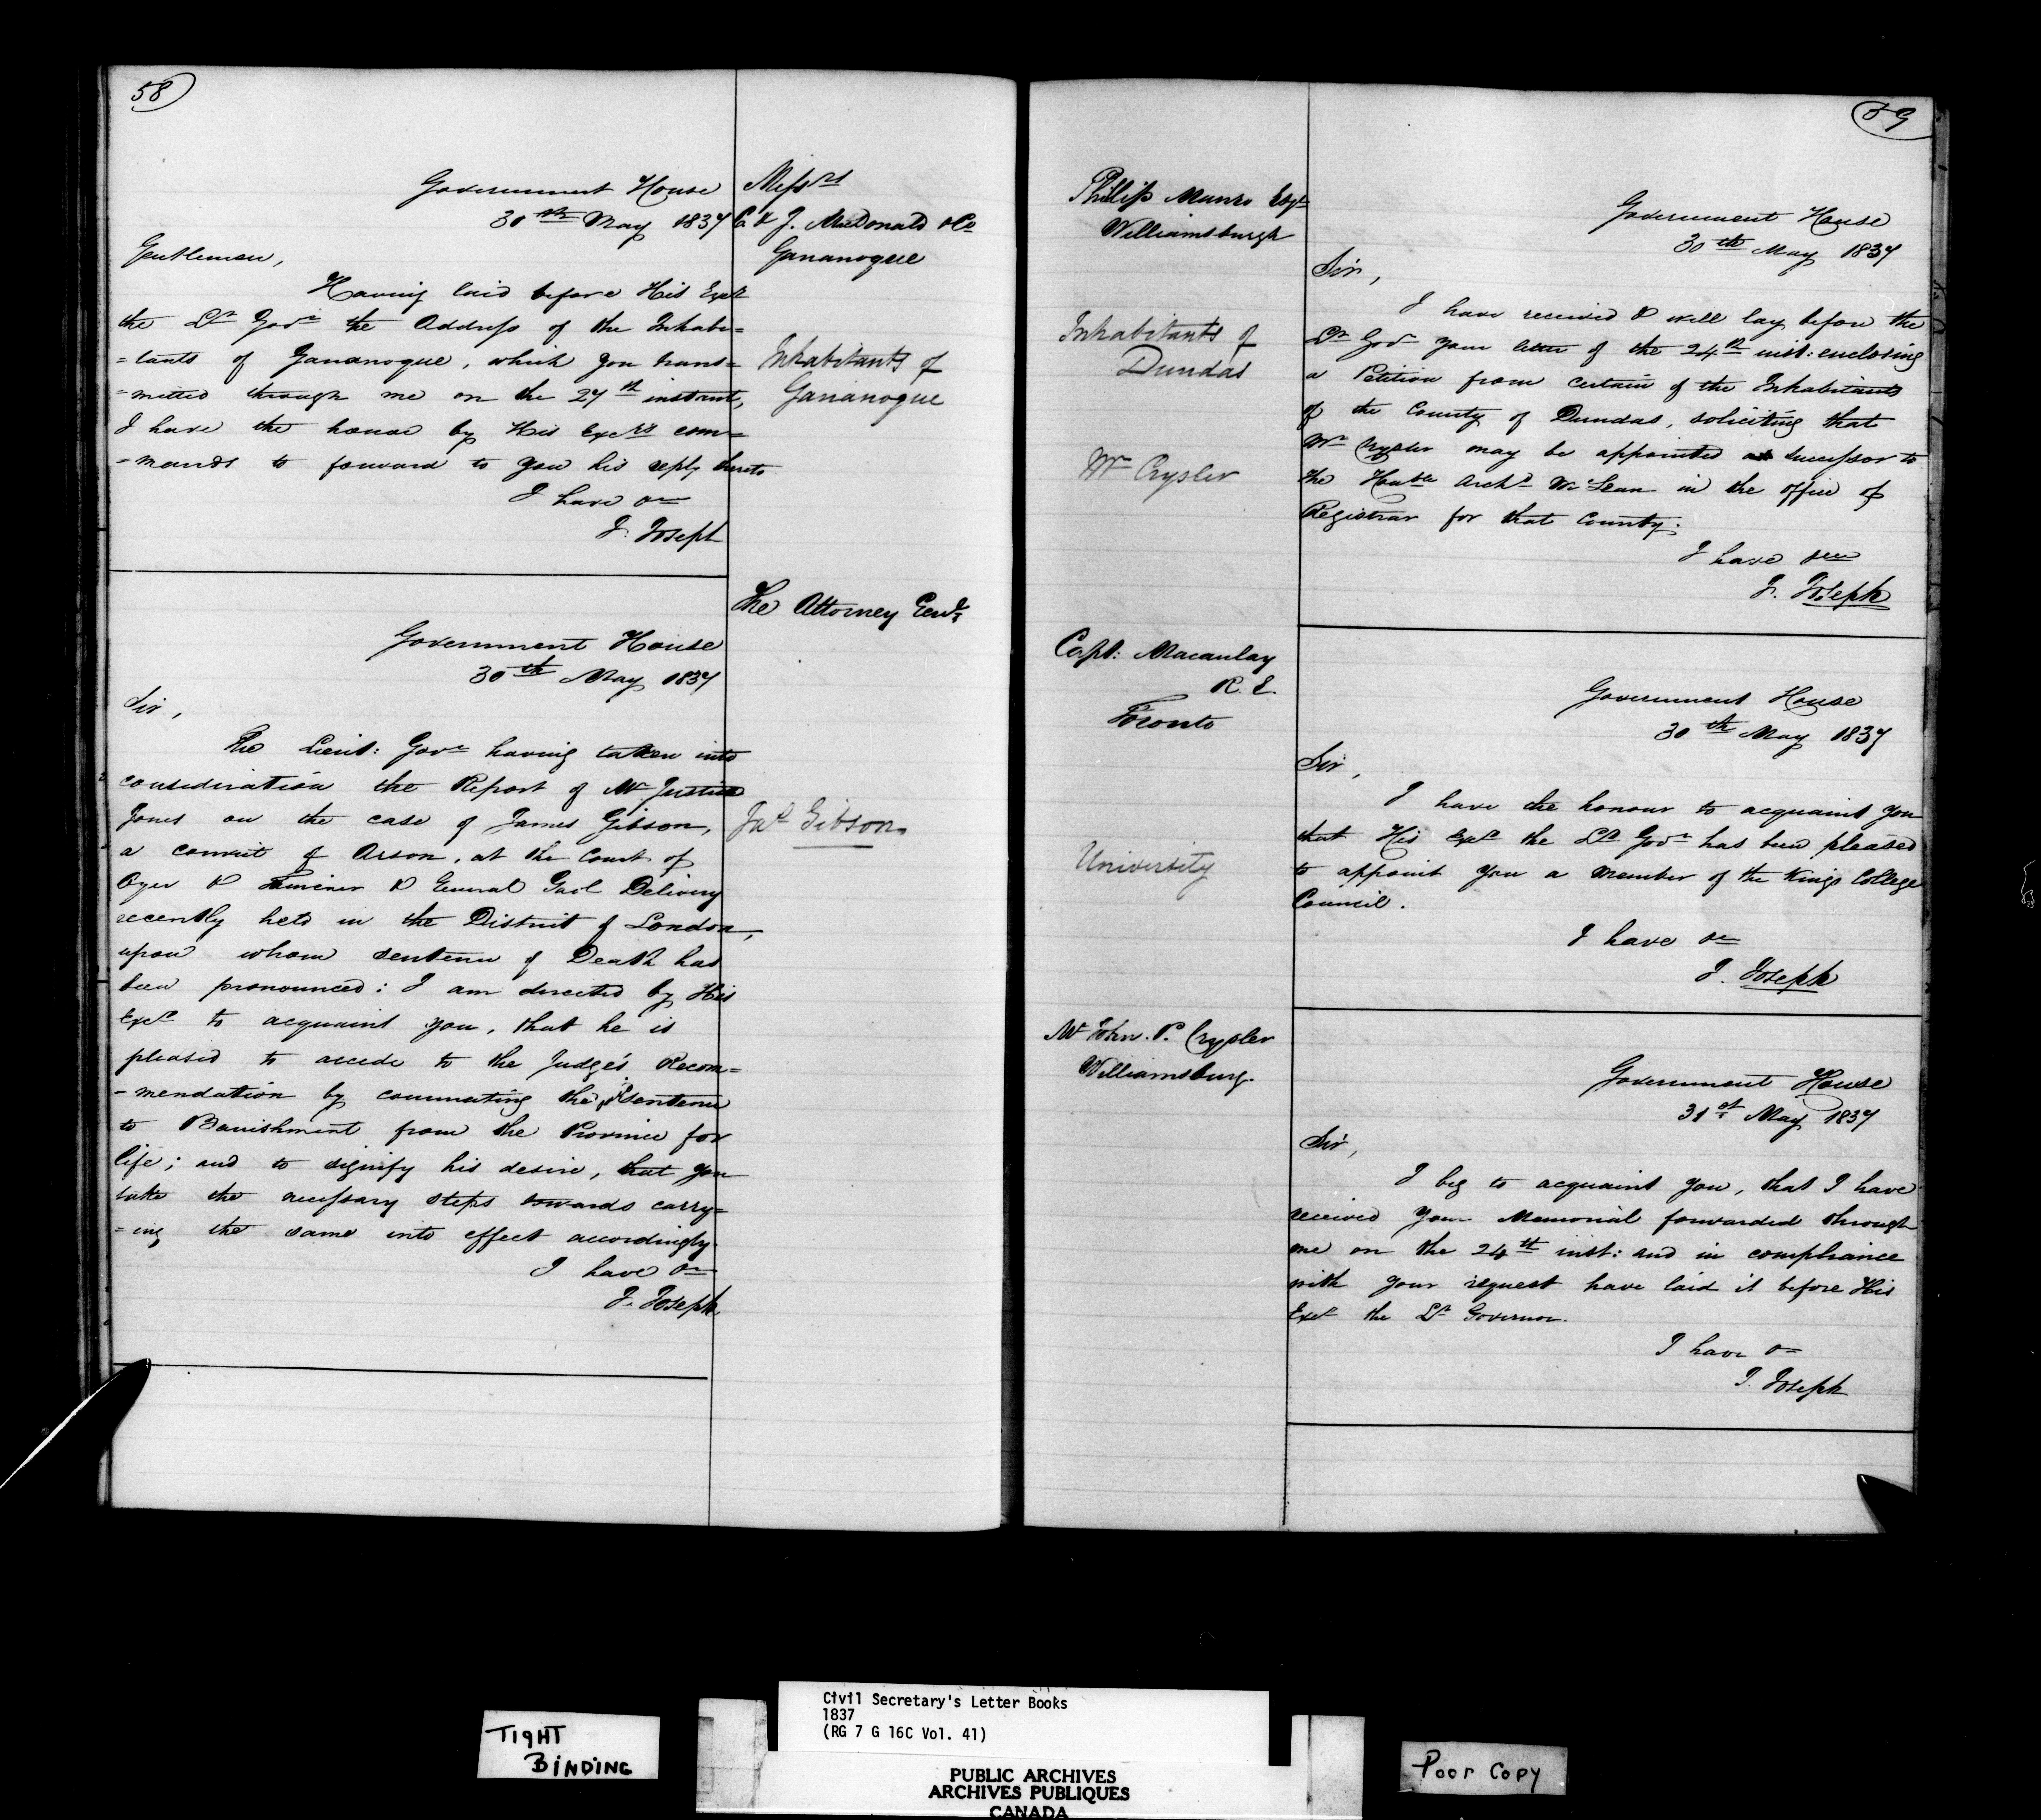 58
Government House
30th May 1837
Messrs
C. & J. McDonald & Co
Gananoque
Gentlemen,
Having laid before His Excy
the Lt Govr the Address of the Inhabi=
=tants of Gananoque, which you trans=
=mitted through me on the 27th instant,
I have the honor by His Excy's com=
=mands to forward to you his reply thereto
I have &c
J. Joseph
Inhabitants of
Gananoque
The Attorney Genl
Government House
30th May 1837
Sir,
The Lieut: Govr having taken into
consideration the Report of Mr Justice
Jones on the case of James Gibson,
a convict of Arson, at the Court of
Oyer & Terminer & General Gaol Delivery
recently held in the District of London,
upon whom sentence of Death has
been pronounced: I am directed by His
Excy to acquaint you, that he is
pleased to accede to the Judge's Recom=
=mendation by commuting the sentence
to Banishment from the Province for
life; and to signify his desire, that you
take the necessary steps towards carry=
=ing the same into effect accordingly.
I have &c
J. Joseph
Jas Gibson.
59
Phillip Munro Esqr
Williamsburgh
Government House
30th May 1837
Sir,
I have received & will lay before the
Lt Govr your letter of the 24th inst: enclosing
a Petition from certain of the Inhabitants
of the County of Dundas, soliciting that
Mr Crysler may be appointed as successor to
the Honble Archd McLean in the office of
Registrar for that County.
I have &c
J. Joseph
Inhabitants of
Dundas
Mr Crysler
Capt: Macaulay
R. E.
Toronto
Government House
30th May 1837
Sir,
I have the honour to acquaint you
that His Excy the Lt Govr has been pleased
to appoint you a Member of the Kings College
Council.
I have &c
J. Joseph
University
Mr John. P. Crysler
Williamsburg.
Government House
31st May 1837
Sir,
I beg to acquaint you, that I have
received your Memorial forwarded through
me on the 24th inst: and in compliance
with your request have laid it before His
Excy the Lt Governor.
I have &c
J. Joseph
TIGHT
BINDING
Civil Secretary's Letter Books
1837
(RG 7 G 16C Vol. 41)
PUBLIC ARCHIVES
ARCHIVES PUBLIQUES
CANADA
Poor Copy